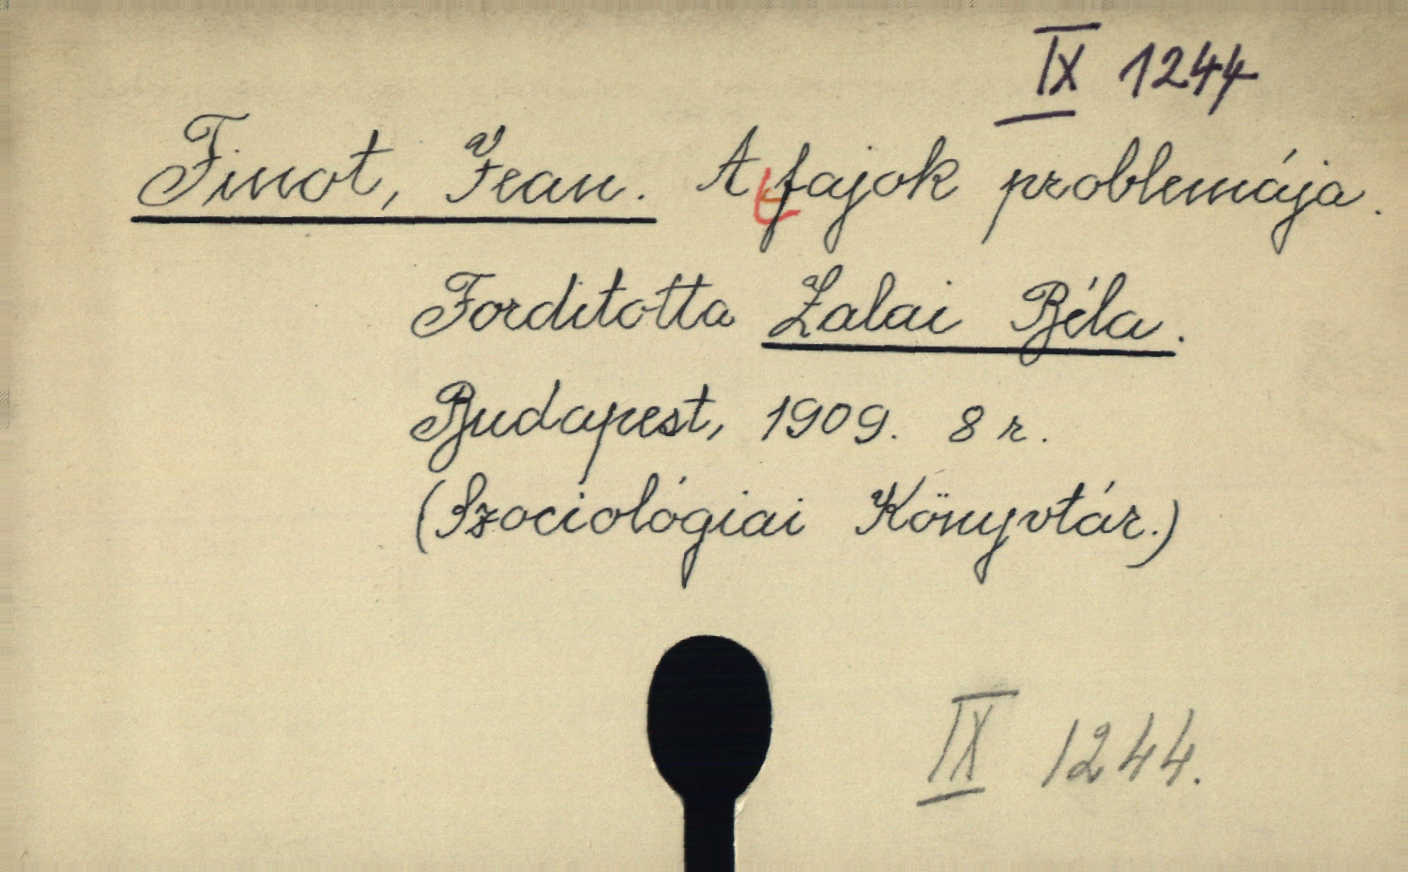 IX 1244
Finot, Jean. A fajok problemája.
Fordította Zalai Béla.
Budapest, 1909. 8 r.
(Szociológiai Könyvtár.)
IX 1244.